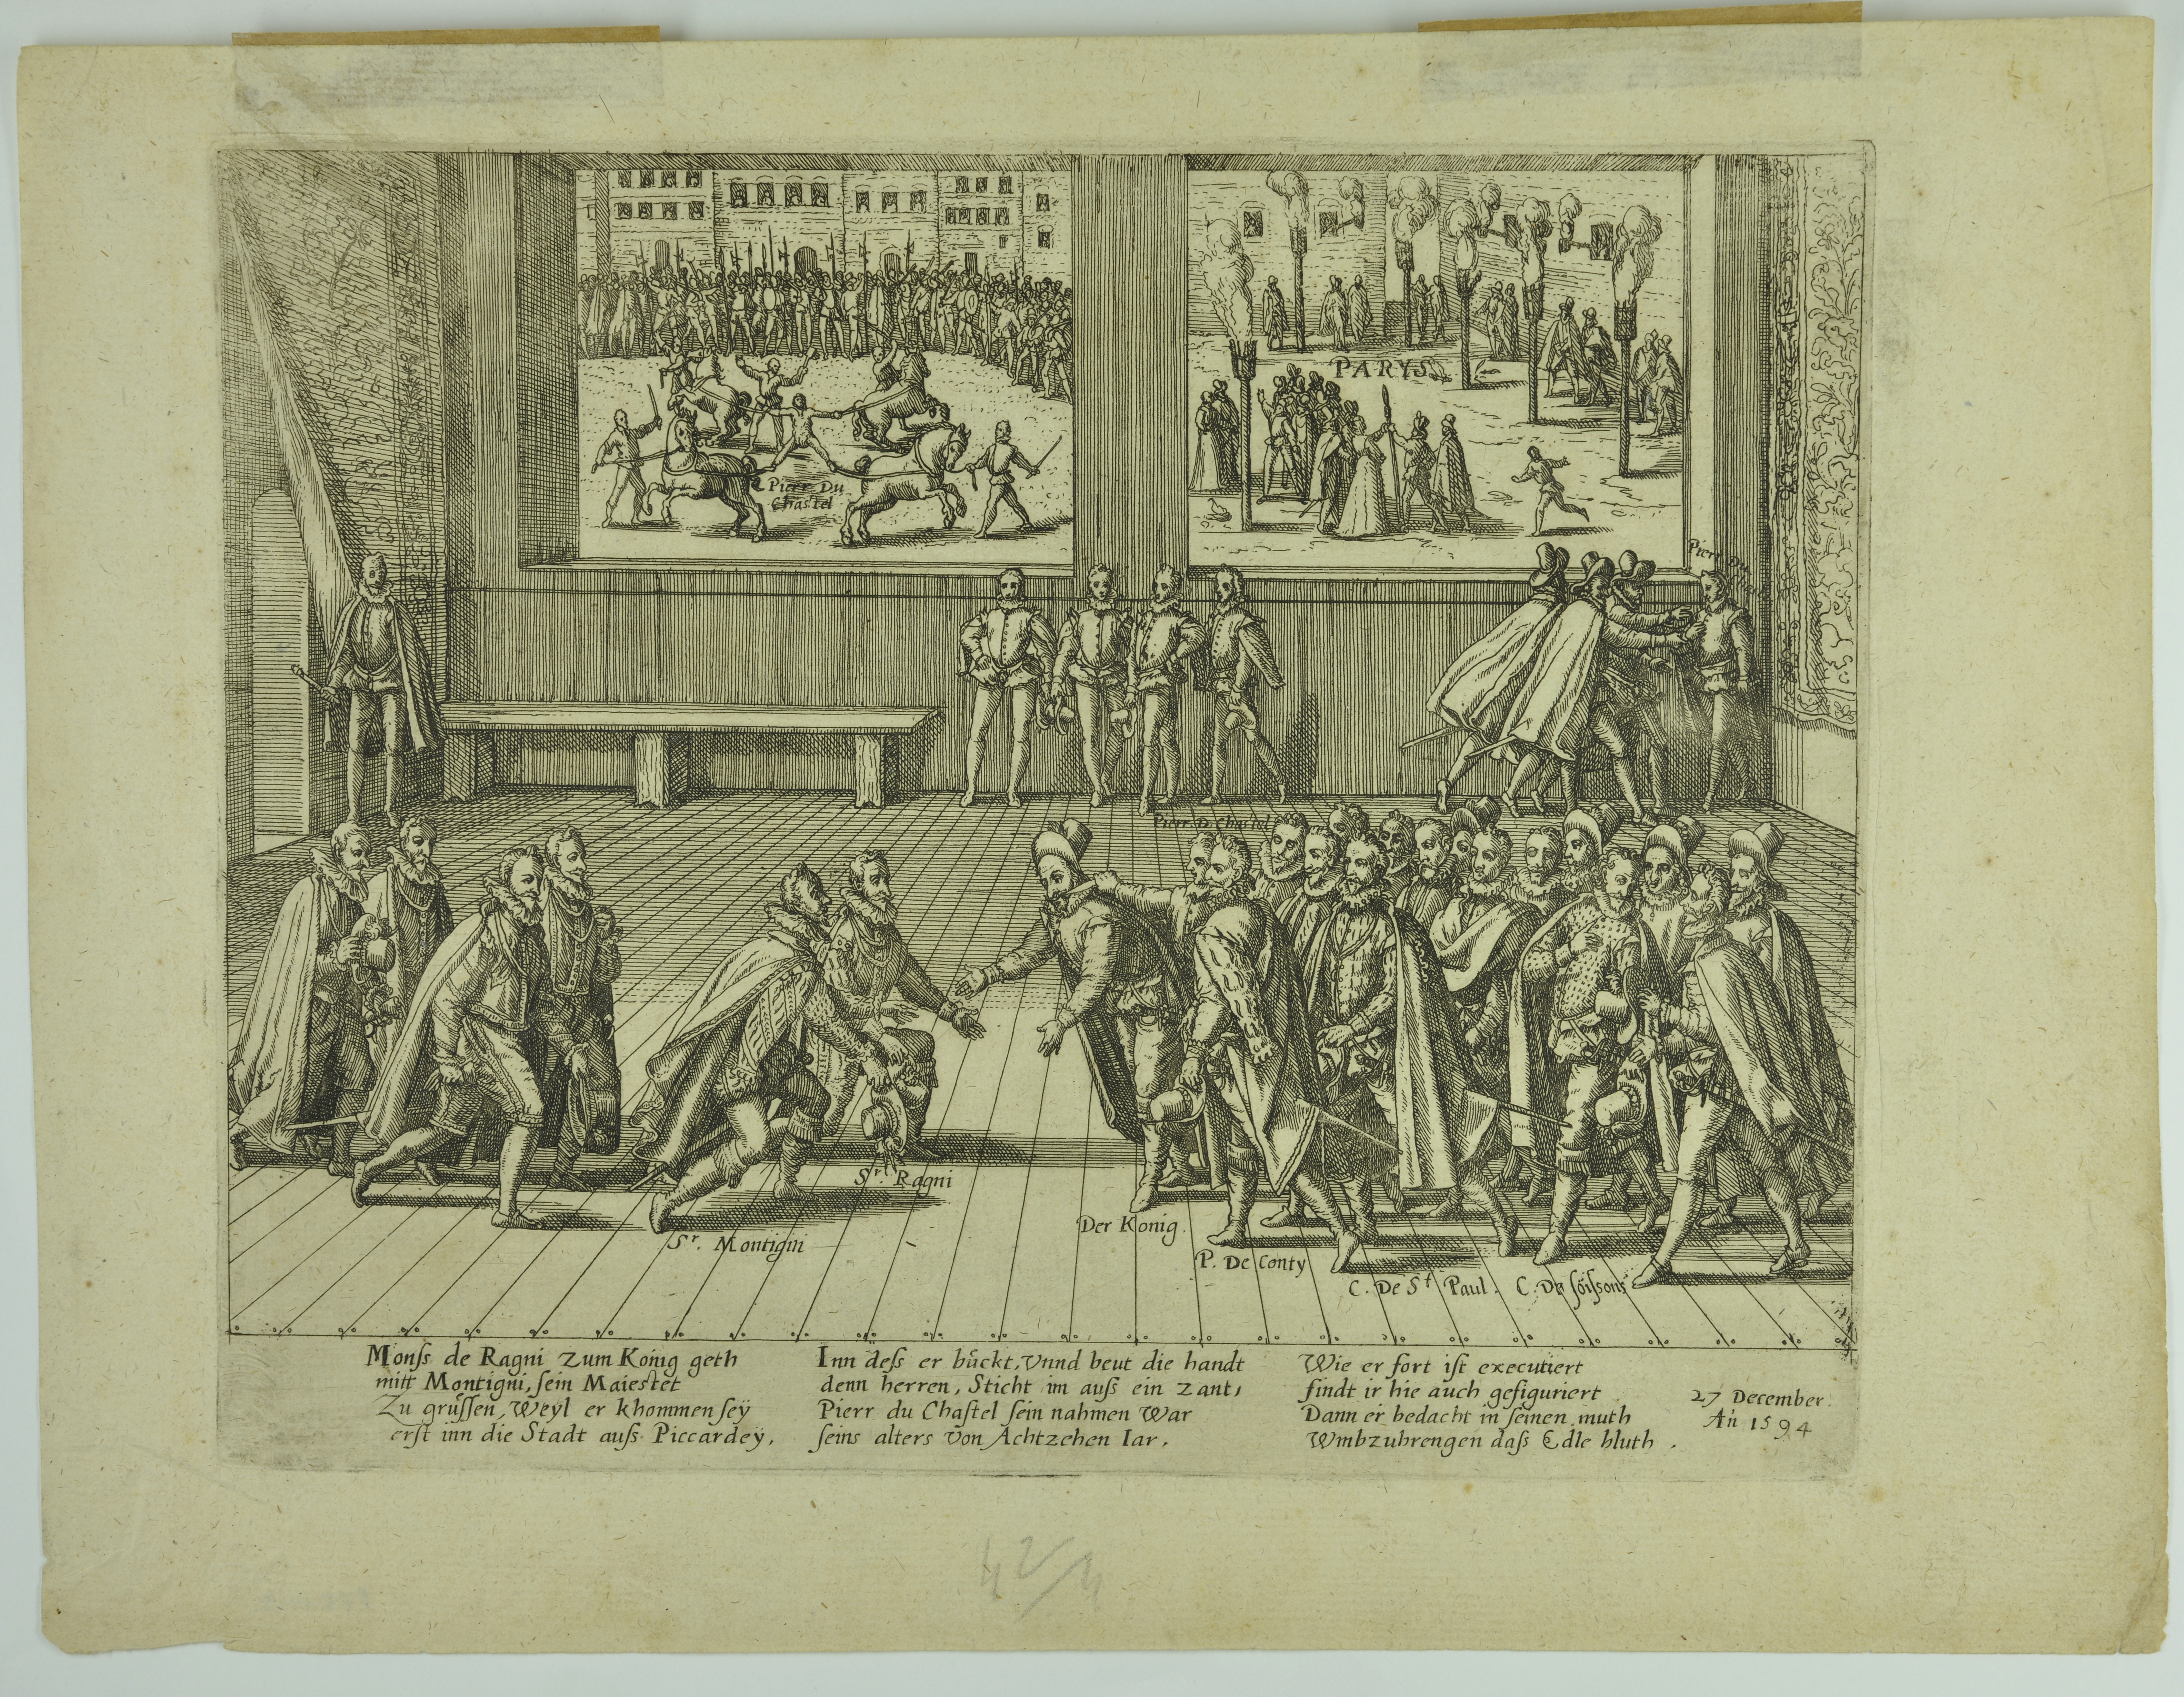 Pierr Du
Chastel
PARYS
Pierr Du
Pierr D Chastel
Sr. Ragni
Sr. Montigni
Der Konig.
P. De Conty
C. De St Paul.
C. De ſöiſsons
Monſs de Ragni zum Konig geth
mitt Montigni, ſein Maiestet
Zu grüſſen, Weyl er khommen ſeÿ
erſt inn die Stadt auſs Piccardeÿ.
Inn deſs er bückt, Vnnd beut die handt
denn herren, Sticht im auſs ein zant,
Pierr du Chaſtel ſein nahmen War
ſeins alters von Achtzehen Iar.
Wie er fort iſt executiert
findt ir hie auch gefiguriert
Dann er bedacht in ſeinen muth
Wmbzubrengen daſs Edle bluth.
27 December.
An 1594